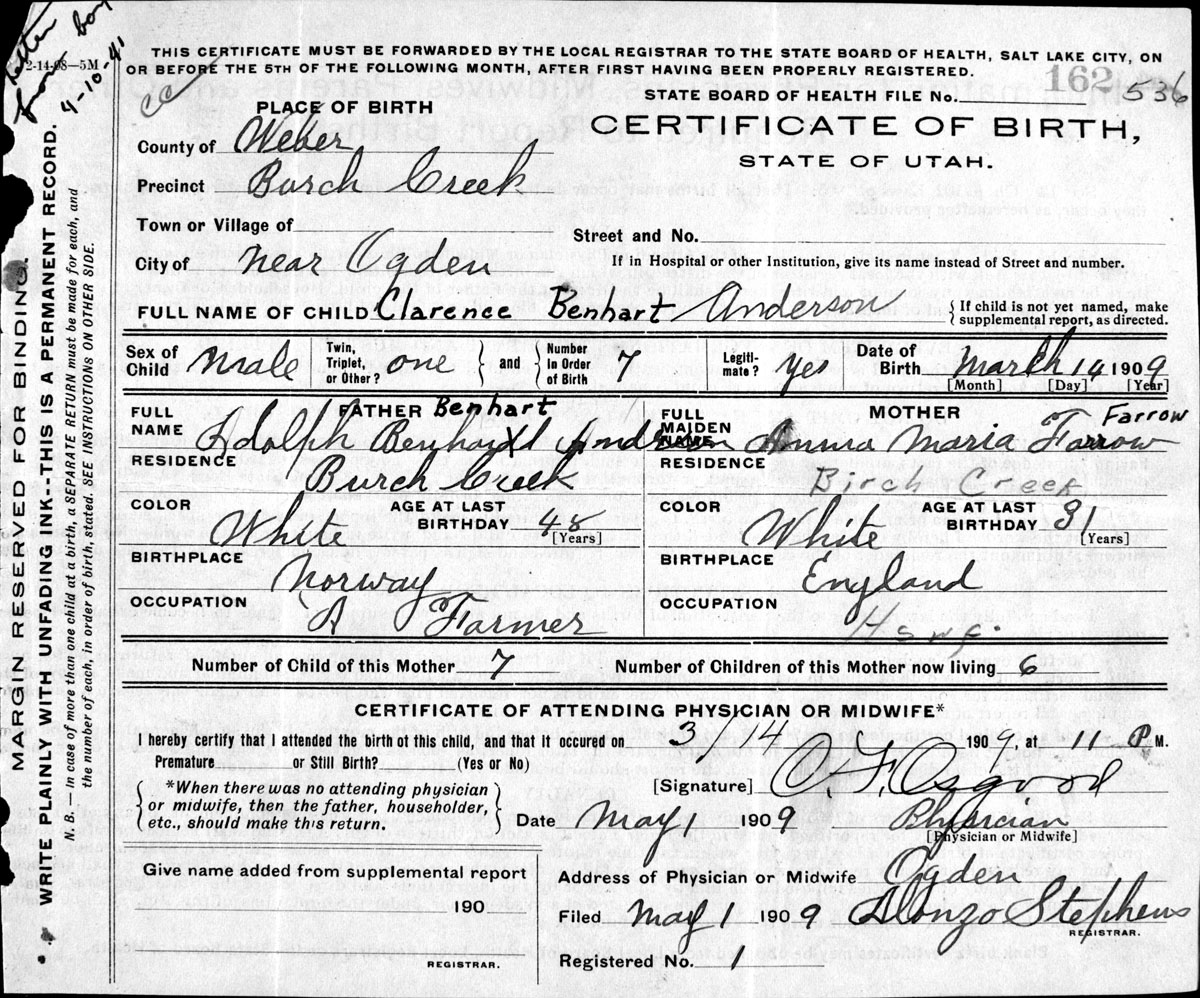 letter
from boy
4-10-41
2-14-08—5M
THIS CERTIFICATE MUST BE FORWARDED BY THE LOCAL REGISTRAR TO THE STATE BOARD OF HEALTH, SALT LAKE CITY, ON
OR BEFORE THE 5TH OF THE FOLLOWING MONTH, AFTER FIRST HAVING BEEN PROPERLY REGISTERED.
cc
162
STATE BOARD OF HEALTH FILE No. 536
PLACE OF BIRTH
CERTIFICATE OF BIRTH,
STATE OF UTAH.
County of Weber
Precinct Burch Creek
Town or Village of
Street and No.
City of near Ogden
If in Hospital or other Institution, give its name instead of Street and number.
FULL NAME OF CHILD Clarence Benhart Anderson { If child is not yet named, make supplemental report, as directed.
Sex of Child Male Twin, Triplet, or Other? one } and { Number In Order of Birth 7 Legitimate? yes Date of Birth March 14 1909
[Month] [Day] [Year]
FATHER
FULL NAME Adolph Benhart Anderson
Benhart
RESIDENCE Burch Creek
COLOR White AGE AT LAST BIRTHDAY 48 [Years]
BIRTHPLACE Norway
OCCUPATION A Farmer
MOTHER
FULL MAIDEN NAME Amma Maria Farrow
Farrow
RESIDENCE Birch Creek
COLOR White AGE AT LAST BIRTHDAY 31 [Years]
BIRTHPLACE England
OCCUPATION Hswf.
Number of Child of this Mother 7 Number of Children of this Mother now living 6
CERTIFICATE OF ATTENDING PHYSICIAN OR MIDWIFE*
I hereby certify that I attended the birth of this child, and that it occured on 3/14 1909, at 11 P. M.
Premature or Still Birth? (Yes or No)
[Signature] O. F. Osgood
{ *When there was no attending physician
or midwife, then the father, householder,
etc., should make this return. }
Date May 1 1909 Physician
[Physician or Midwife]
Give name added from supplemental report
190
REGISTRAR.
Address of Physician or Midwife Ogden
Filed May 1 1909 Alonzo Stephens
REGISTRAR.
Registered No. 1
MARGIN RESERVED FOR BINDING.
WRITE PLAINLY WITH UNFADING INK--THIS IS A PERMANENT RECORD.
N. B. — In case of more than one child at a birth, a SEPARATE RETURN must be made for each, and
the number of each, in order of birth, stated. SEE INSTRUCTIONS ON OTHER SIDE.